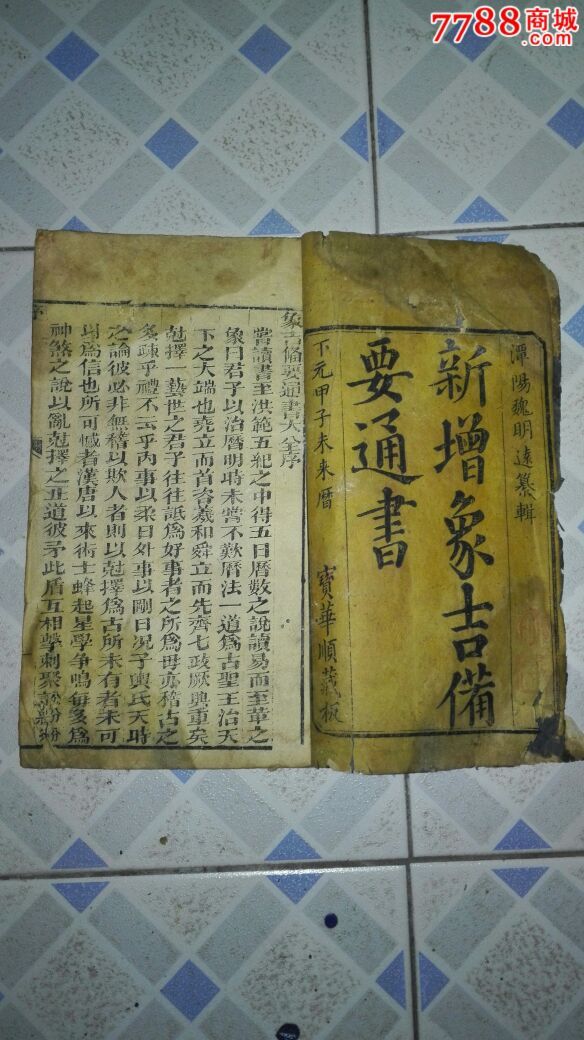 7788商城
.com
潭陽魏明遠纂輯
新增象吉備
要通書
下元甲子未来曆
寶華順藏板
象吉備要通書大全序
嘗讀書至洪範五紀之中得五日曆數之說讀易而至革之
象曰君子以治曆明時未嘗不歎曆法一道為古聖王治天
下之大端也堯立而首咨羲和舜立而先齊七政厥興重矣
尅擇一藝世之君子往往詆為好事者之所為毋亦稽古之
多疎乎禮不云乎內事以柔日外事以剛日况子輿氏天時
之論彼必非無稽以欺人者則以尅擇為古所未有者未可
以為信也所可憾者漢唐以來術士蜂起星學争鳴每多為
神煞之說以亂尅擇之正道彼矛此盾互相擊刺聚訟紛紛